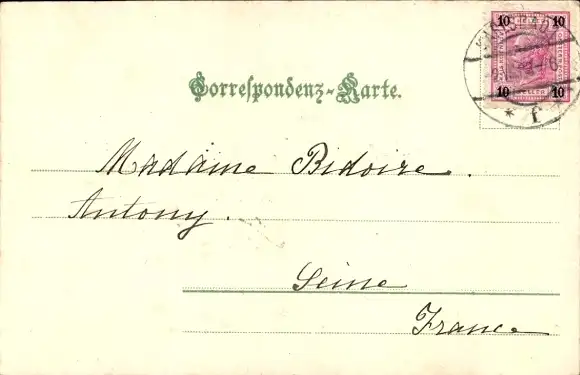 10 10
KARLSBAD
10 10
* f
Correspondenz-Karte.
Madame Bidoire.
Antony.
Seine
France